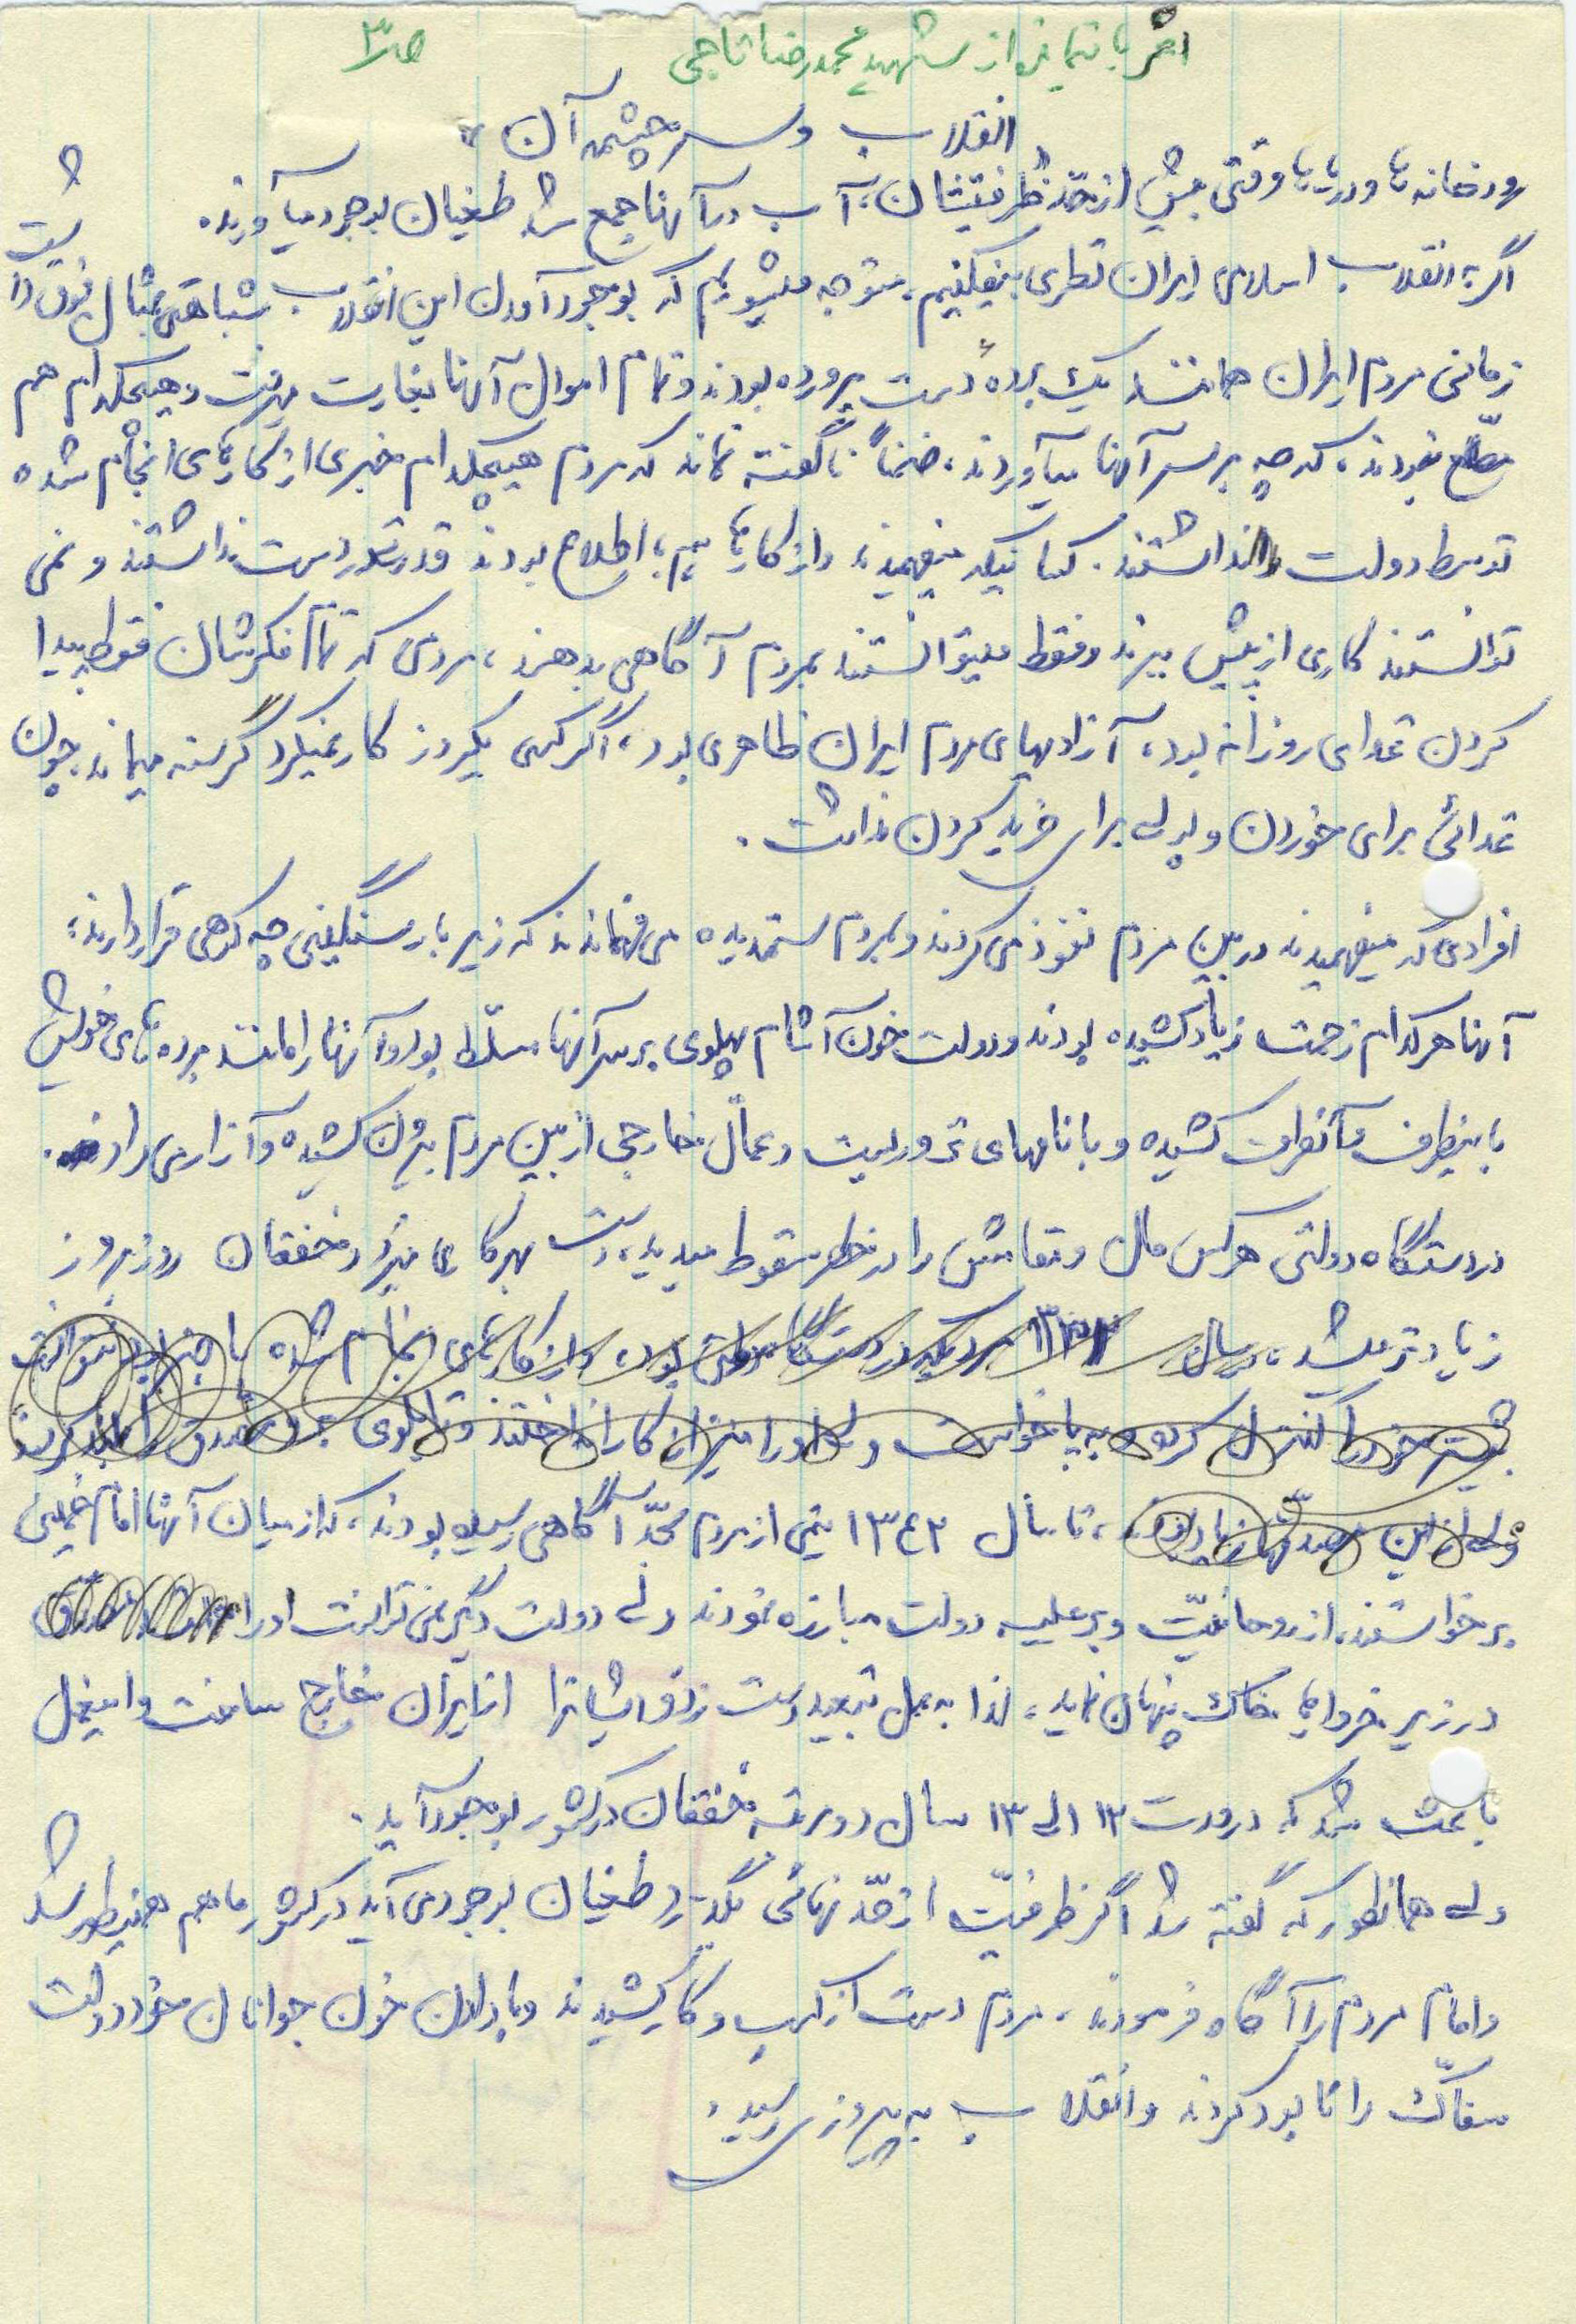 اثر باقیمانده از شهید محمدرضا تاجی ص ۳
«انقلاب و سرچشمه آن»
رودخانه ها و دریاها وقتی بیش از حدّ ظرفیتشان، آب در آنها جمع شد طغیان بوجود میآورند.
اگر به انقلاب اسلامی ایران نظری بیفکنیم، متوجه میشویم که بوجود آمدن این انقلاب شباهتی بمثال فوق داشت
زمانی مردم ایران همانند یک برده دست پرورده بودند و تمام اموال آنها بغارت میرفت و هیچکدام هم
مطّلع نبودند، که چه بر سر آنها میآوردند، ضمناً ناگفته نماند که مردم هیچکدام خبری از کارهای انجام شده
توسط دولت نداشتند. کسانیکه میفهمیدند و از کارها هم با اطلاع بودند قدرت در دست نداشتند و نمی
توانستند کاری از پیش ببرند و فقط میتوانستند بمردم آگاهی بدهند، مردمی که تمام فکرشان فقط پیدا
کردن غذای روزانه بود، آزادیهای مردم ایران ظاهری بود، اگر کسی یکروز کار نمیکرد گرسنه میماند چون
غذائی برای خوردن و پولی برای خرید کردن نداشت.
افرادی که میفهمیدند در بین مردم نفوذ می کردند و بمردم ستمدیده می فهماندند که زیر بار سنگینی چه کوهی قرار دارند،
آنها هر کدام زحمت زیاد کشیده بودند و دولت خون آشام پهلوی بر سر آنها مسلّط بود و آنها را مانند برده های خویش
باینطرف و آنطرف کشیده و با نامهای تروریست و عمّال خارجی از بین مردم بیرون کشیده و آزار می داد.
در دستگاه دولتی هر کس مال و مقامش را در خطر سقوط میدید، دست بهر کاری میزد و خفقان روز بروز
زیادتر میشد، در سال مردیکه در دستگاه دولتی بود، و از کارهای انجام شده با خبر بود نتوانست
بیشتر خود را کنترل کرده و بپا خواست ولی او را نیز از کار انداختند
ولی از این ، تا سال ۱۳۴۲ نیمی از مردم بحدّ آگاهی رسیده بودند، که از میان آنها امام خمینی
برخواستند، از روحانیّت و بر علیه دولت مبارزه نمودند ولی دولت دیگر نمی توانست او را
در زیر خروارها خاک پنهان نماید، لذا به عمل تبعید دست زد و ایشانرا از ایران خارج ساخت و این عمل
باعث شد که در مدت ۱۲ الی ۱۳ سال دو مرتبه خفقان در کشور بوجود آید.
ولی همانطور که گفته شد اگر ظرفیّت از حدّ نهائی بگذرد طغیان بوجود می آید در کشور ما هم همینطور شد
و امام مردم را آگاه فرمودند، مردم دست از کسب و کار کشیدند و با دادن خون جوانان خود دولت
سفّاک را نابود کردند و انقلاب به پیروزی رسید.